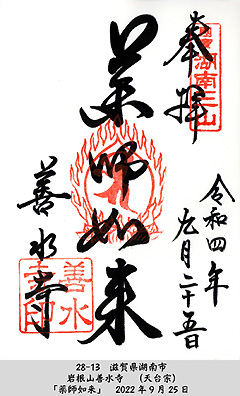 奉拝
湖南三山
令和四年
九月二十五日
薬師如来
善水寺
善水
寺印
28-13 滋賀県湖南市
岩根山善水寺 (天台宗)
「薬師如来」 2022年9月25日